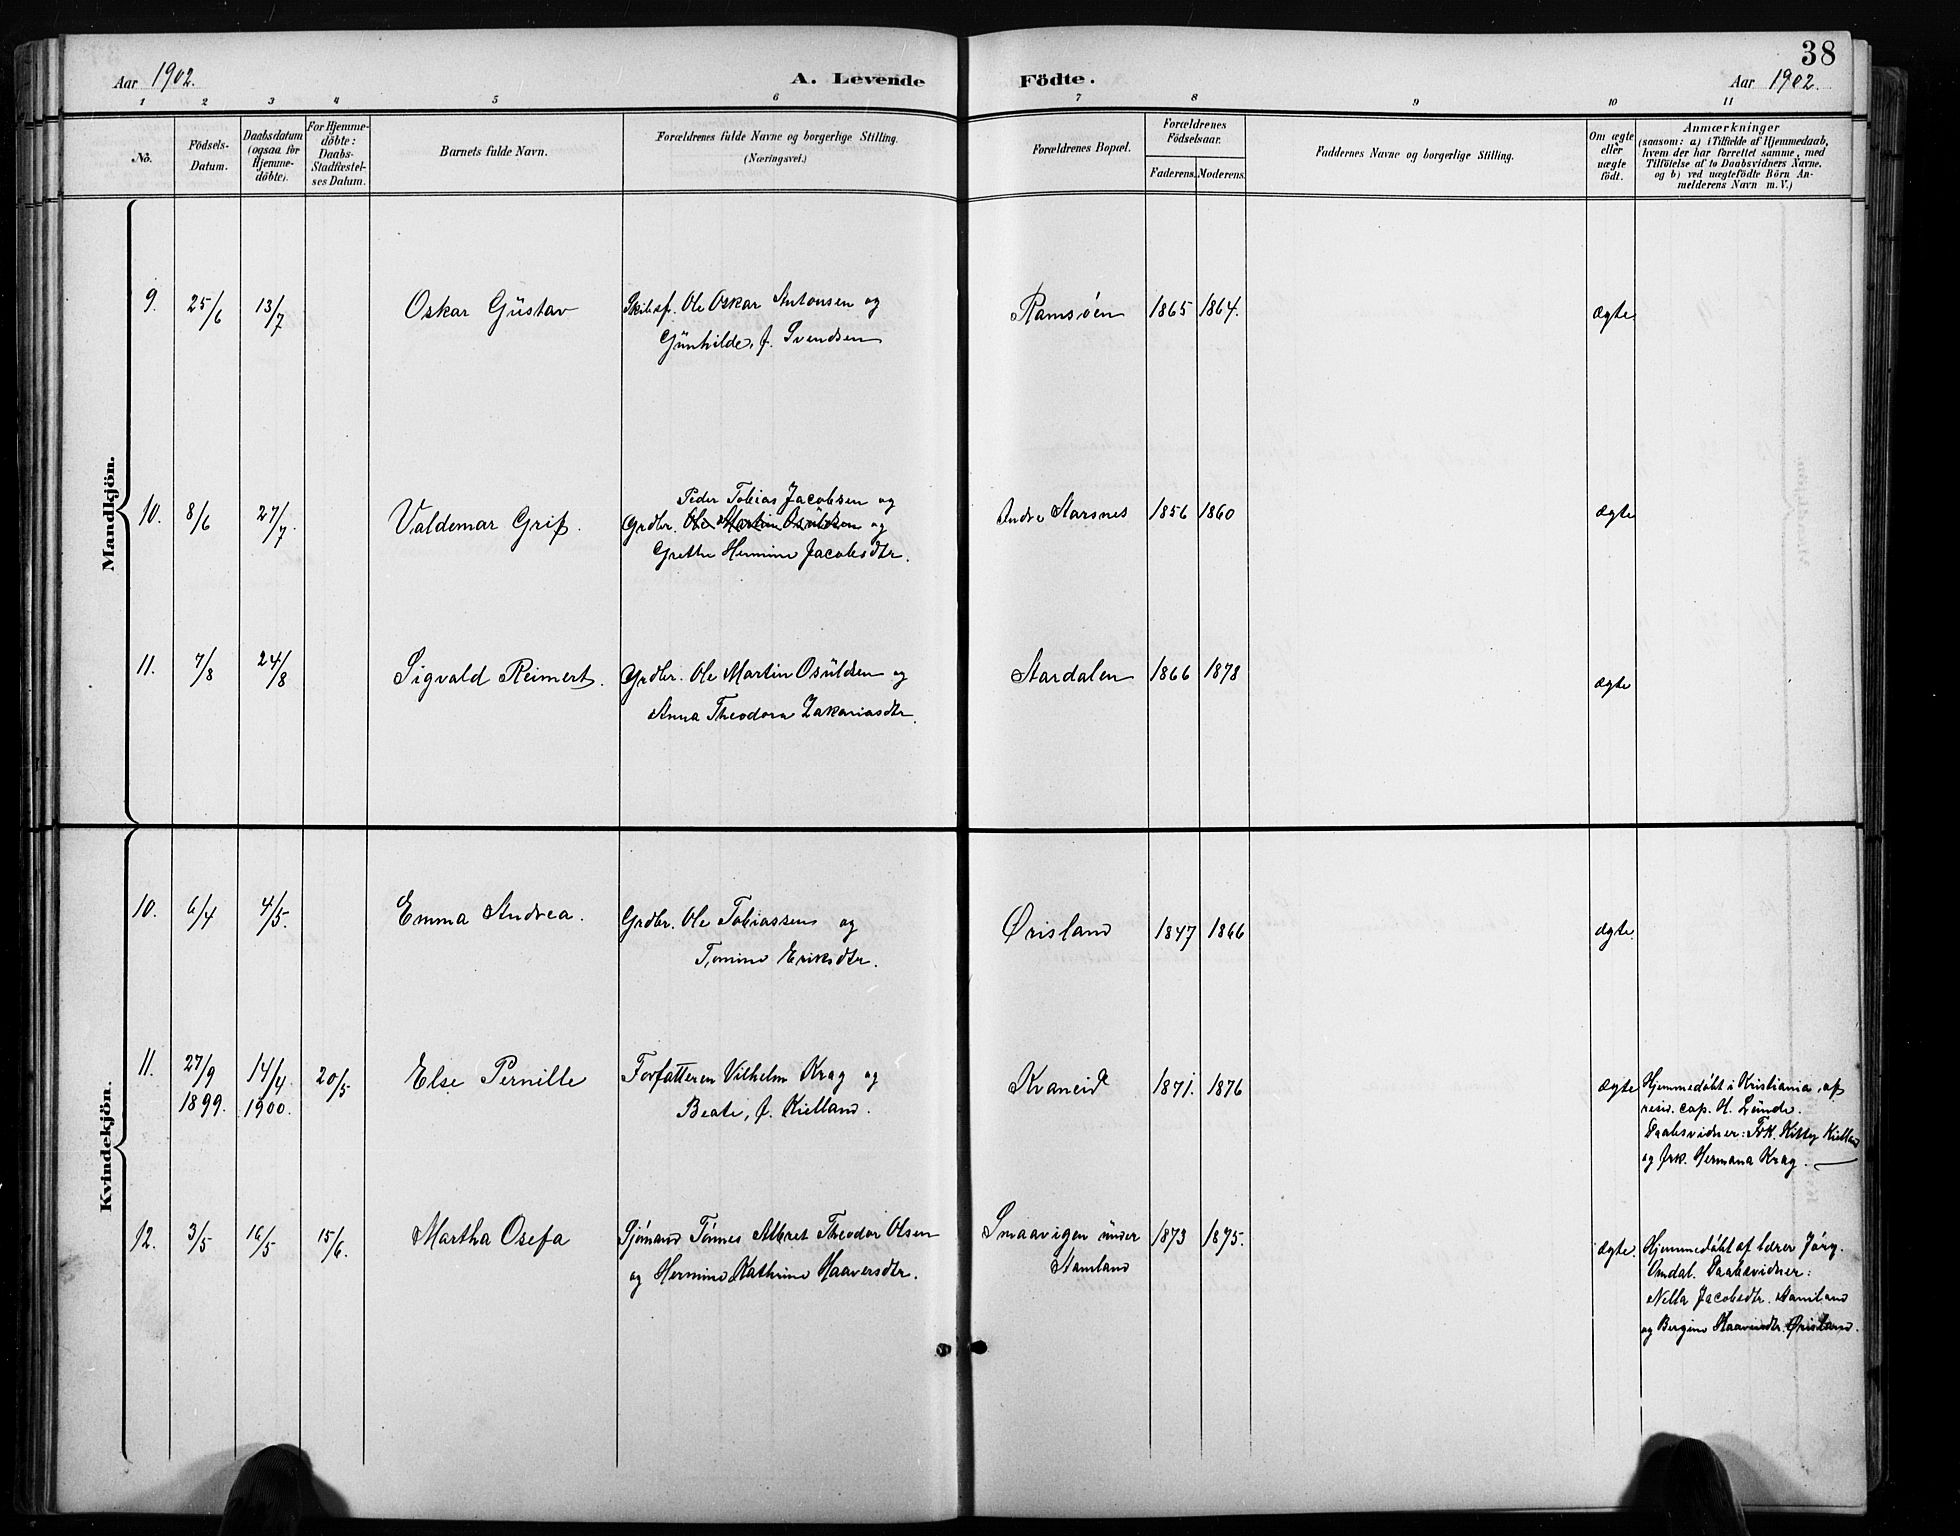 38
Aar 1902.
A. Levende Födte.
Aar 1902.
1 2 3 4 5 6 7 8 9 10 11
No.
Födsels-
Datum.
Daabsdatum
(ogsaa for
Hjemme-
döbte).
For Hjemme-
döbte:
Daabs-
Stadfæstel-
ses Datum.
Barnets fulde Navn.
Forældrenes fulde Navne og borgerlige Stilling.
(Næringsvei.)
Forældrenes Bopæl.
Forældrenes
Födselsaar.
Faderens. Moderens.
Faddernes Navne og borgerlige Stilling.
Om ægte
eller
uægte
födt.
Anmærkninger
(saasom: a) i Tilfælde af Hjemmedaab,
hvem der har forrettet samme, med
Tilföielse af to Daabsvidners Navne.
og b) ved uægtefödte Börn An-
melderens Navn m. V.)
Mandkjön.
9. 25/6 13/7 Oskar Gustav Skibsf. Ole Oskar Antonsen og Ramsøen 1865 1864. ægte.
Gunhilde, f. Svendsen
Peder Tobias Jacobsen og
10. 8/6 27/7 Valdemar Grif. Grdbr. Ole Martin Osuldsen og Andr. Aarsnes 1856 1860 ægte
Grethe Hermine Jacobsdtr.
11. 7/8 24/8 Sigvald Reimert. Grdbr. Ole Martin Osuldsen og Aardalen 1866 1878 ægte
Anna Theodora Zakariasdtr.
Kvindekjön.
10. 6/4 4/5. Emma Andrea. Grdbr. Ole Tobiassen og Ørisland 1847 1866 ægte.
Tomine Eriksdtr.
11. 27/9 14/4 20/5 Else Pernille Forfatteren Vilhelm Krag og Kvaneid 1871. 1876 ægte Hjemmedøbt i Kristiania, af
1899. 1900. Beate, f. Kielland. resid. cap. H. Lunde.
Daabsvidner: Frk. Kitty Kielland
og frk. Hermana Krag.
12. 3/5 16/5 15/6. Martha Osefa Sjømand Tønnes Albret Theodor Olsen Smaavigen under 1873 1875. ægte. Hjemmedøbt af lærer Jørg.
og Hermine Kathrine Haaversdtr. Hamland Omdal. Daabsvidner:
Nella Jacobsdtr. Hamland
og Bergine Haaversdtr. Ørisland.